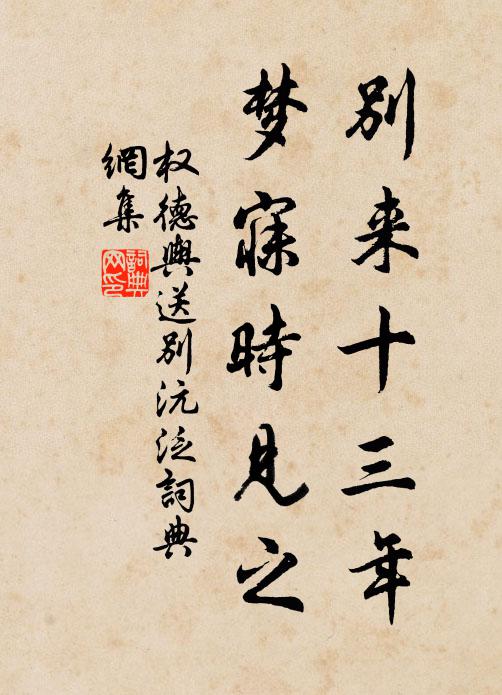 别来十三年
梦寐時見之
权德輿送别沅泛詞典
網集
詞典
网印